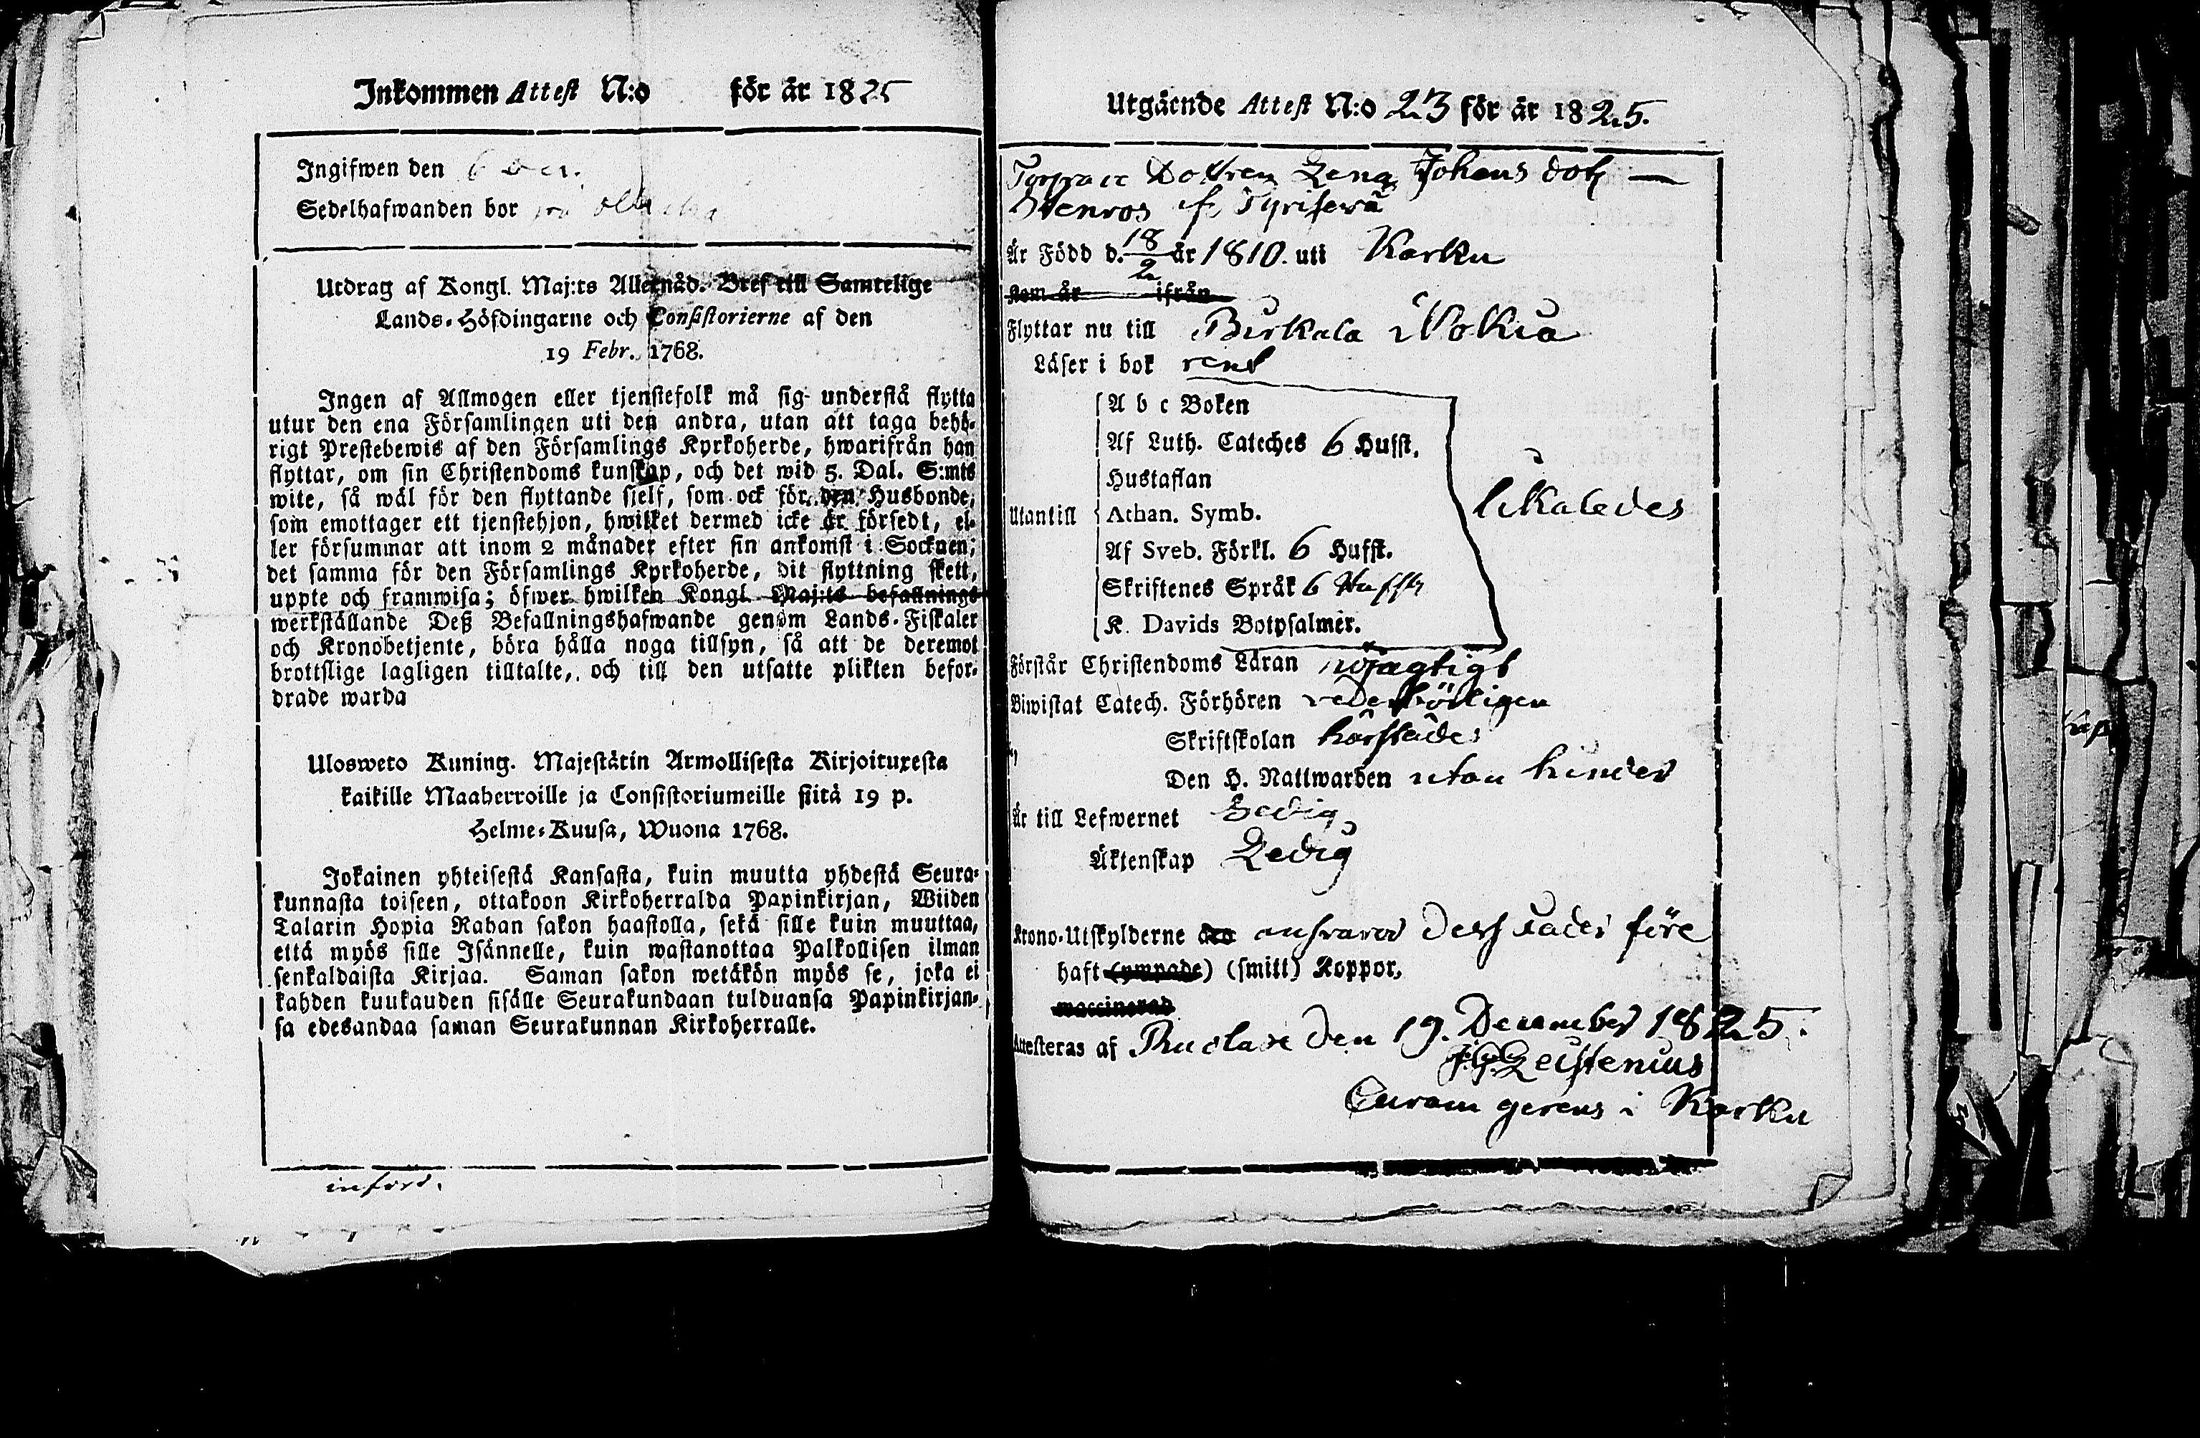 Inkommen Attest N:o för år 1825
Ingifwen den 6
Sedelhafwanden bor
Utdrag af Kongl. Maj:ts Allernåd. Bref till Samtelige
Lands-Höfdingarne och Consistorierne af den
19 Febr. 1768.
Ingen af Allmogen eller tjenstefolk må sig understå flytta
utur den ena Församlingen uti den andra, utan att taga behö-
rigt Prestebewis af den Församlings Kyrkoherde, hwarifrån han
flyttar, om sin Christendoms kunskap, och det wid 5. Dal. S:mts
wite, så wäl för den flyttande sjelf, som ock för den Husbonde,
som emottager ett tjenstehjon, hwilket dermed icke är försedt, el-
ler försummar att inom 2 månader efter sin ankomst i Socknen,
det samma för den Församlings Kyrkoherde, dit flyttning skett,
uppte och framwisa; öfwer hwilken Kongl. Maj:ts befallnings
werkställande Deß Befallningshafwande genom Lands-Fiskaler
och Kronobetjente, böra hålla noga tillsyn, så att de deremot
brottslige lagligen tilltalte, och till den utsatte plikten befor-
drade warda
Ulosweto Kuning. Majestätin Armollisesta Kirjoituxesta
kaikille Maaherroille ja Consistoriumeille siitä 19 p.
Helme-Kuusa, Wuona 1768.
Jokainen yhteisestä Kansasta, kuin muutta yhdestä Seura-
kunnasta toiseen, ottakoon Kirkoherralda Papinkirjan, Wiiden
Talarin Hopia Rahan sakon haastolla, sekä sille kuin muuttaa,
että myös sille Isännelle, kuin wastanottaa Palkollisen ilman
senkaldaista Kirjaa. Saman sakon wetäkön myös se, joka ei
kahden kuukauden sisälle Seurakundaan tulduansa Papinkirjan-
sa edesandaa saman Seurakunnan Kirkoherralle.
inford.
Utgående Attest N:o 23 för år 1825.
Dottren Lena Johans dotr
Stenros fr Tyrisevä
Är Född d. 18/2 år 1810. uti Karku
Kom år ifrån
Flyttar nu till Birkala Nokia
Läser i bok rent
A b c Boken
Af Luth. Cateches 6 Hufst.
Hustaflan
Utantill Athan. Symb. likaledes
Af Sveb. Förkl. 6 Hufst.
Skriftenes Språk 6 Hufst
K. Davids Botpsalmer.
Förstår Christendoms Läran
Biwistat Catech. Förhören vederbörligen
Skriftskolan härstädes
Den H. Nattwarden utan hinder
Är till Lefwernet
Äktenskap Ledig
Krono-Utskylderne ansvarar före
haft (ympade) (smitt) Koppor,
waccinerad
Attesteras af den 19. December 1825.
Zeistenius
Curam gerens i Karku